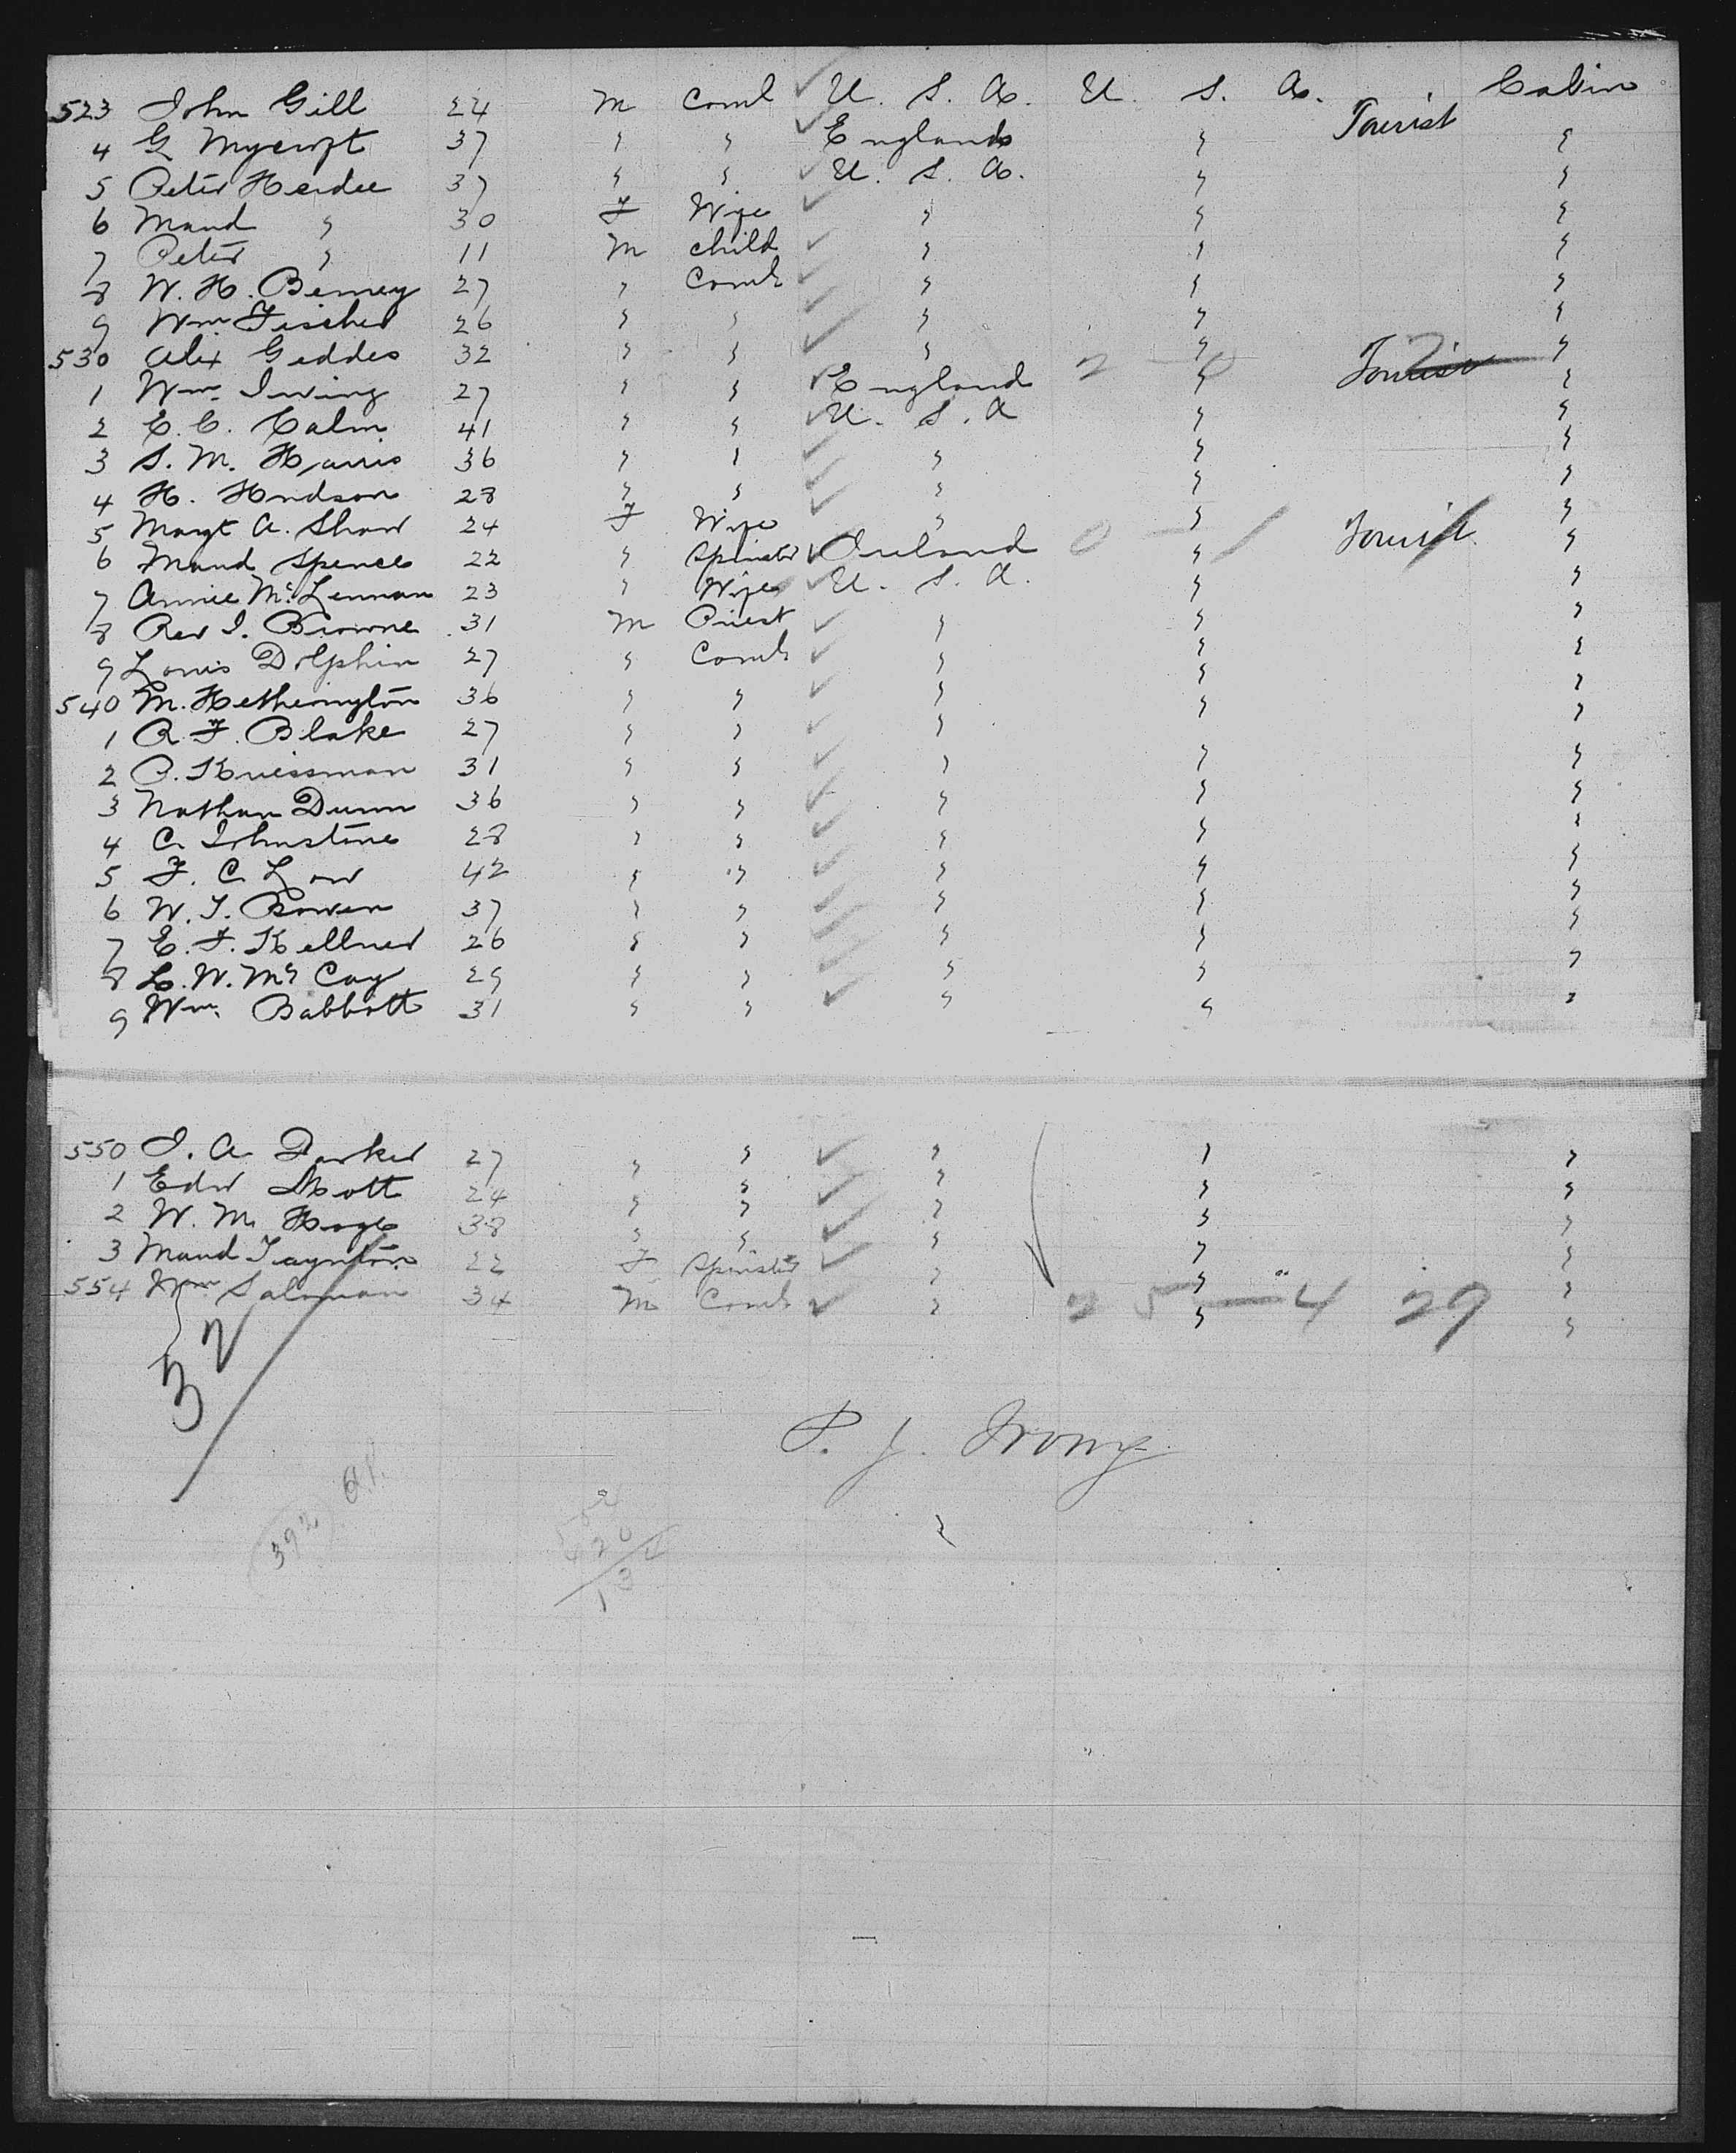 523 John Gill 24 M Coml U. S. A. U. S. A. Cabin
4 G Mycroft 37 " " England " Tourist "
5 Peter Herdee 37 " " U. S. A. " "
6 Maud " 30 F Wife " " "
7 Peter " 11 M child " " "
8 W. H. Berney 27 " Coml " " "
9 Wm Fischer 26 " " " " "
530 Alex Geddes 32 " " " " "
1 Wm. Irving 27 " " England 2 - 0 " Tourist 2 "
2 C. C. Calm 41 " " U. S. A " "
3 S. M. Harris 36 " " " " "
4 H. Hudson 28 " " " " "
5 Margt A. Shaw 24 F Wife " " "
6 Maud Spence 22 " Spinster Ireland 0 - 1 " Tourist "
7 Annie McLennan 23 " Wife U. S. A. " "
8 Rev J. Browne 31 M Priest " " "
9 Louis Dolphin 27 " Coml " " "
540 M. Hetherington 36 " " " " "
1 A. F. Blake 27 " " " " "
2 P. Kriessman 31 " " " " "
3 Nathan Dunn 36 " " " " "
4 C. Johnstone 28 " " " " "
5 F. C. Low 42 " " " " "
6 W. T. Bowen 37 " " " " "
7 E. F. Kellner 26 " " " " "
8 L. W. McCay 29 " " " " "
9 Wm. Babbott 31 " " " " "
550 J. A. Parker 27 " " " " "
1 Edw Mott 24 " " " " "
2 W. M. Hoge 38 " " " " "
3 Maud Taynton 22 F Spinster " " "
554 Wm Saloman 34 M Coml " 25 - 4 29 "
32
P. J. Irong
392
552
420
132